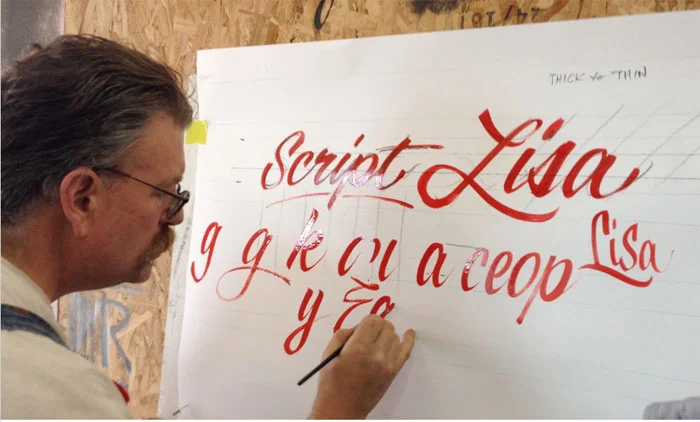 THICK to THIN
Script Lisa
g g k a ceop Lisa
y